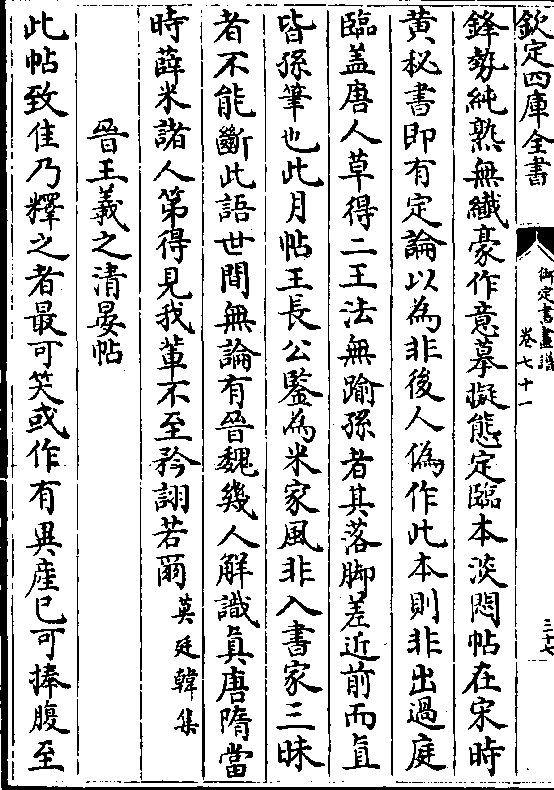 欽定四庫全書
御定書畫譜
卷七十一
三十七
鋒勢純熟無纎豪作意摹擬態定臨本淡悶帖在宋時
黄秘書即有定論以為非後人偽作此本則非出過庭
臨蓋唐人草得二王法無踰孫者其落脚差近前而直
皆孫筆也此月帖王長公鑒為米家風非入書家三昧
者不能斷此語世間無論有晉魏幾人解識真唐隋當
時薛米諸人第得見我輩不至矜詡若爾莫廷韓集
晉王羲之清晏帖
此帖致佳乃釋之者最可笑或作有異産已可捧腹至